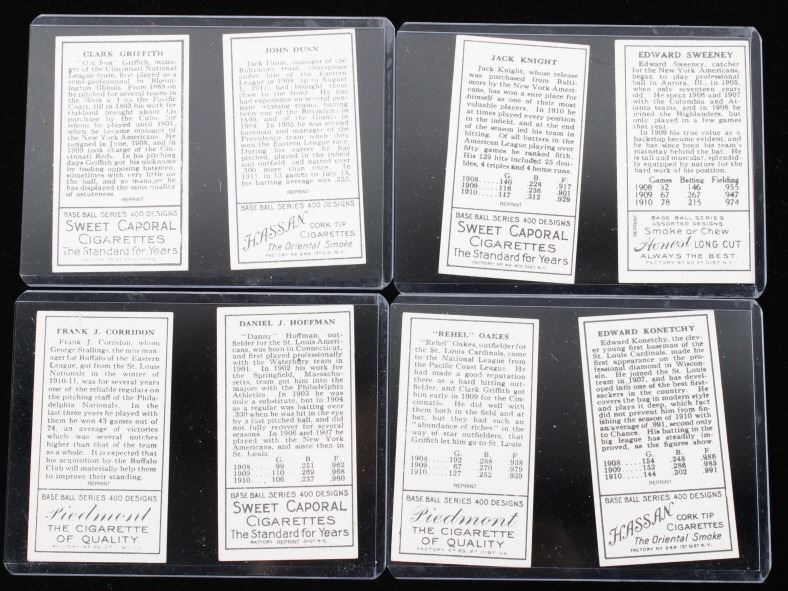 CLARK GRIFFITH
"Old Fox" Griffith, mana-
ger of the Cincinnati National
League team, first played as a
semi-professional in Bloom-
ington Illinois. From 1888 on
he pitched for several teams in
the West and on the Pacific
Coast, till in 1893 his work for
Oakland brought about his
purchase by the Cubs, for
whom he played until 1901,
when he became manager of
the New York Americans. He
resigned in June, 1908, and in
1909 took charge of the Cin-
cinnati Reds. In his pitching
days Griffith got his nickname
by fooling opposing batsmen,
sometimes with very little on
the ball, and as manager he
has displayed the same quality
of astuteness.
REPRINT
BASE BALL SERIES 400 DESIGNS
SWEET CAPORAL
CIGARETTES
The Standard for Years
JOHN DUNN
Jack Dunn, manager of the
Baltimore team, champions
under him of the Eastern
League in 1908, up to August
of 1911, had brought them
close to the front. He has
had experience on several pen-
nant winning teams, having
been one of the Brooklyns in
1899, and of the Giants in
1904. In 1905 he was second
baseman and manager of the
Providence team when they
won the Eastern League race.
During his career he has
pitched, played in the infield
and outfield, and batted over
.300 more than once. In
1911, in 13 games to July 15,
his batting average was .355.
REPRINT
BASE BALL SERIES 400 DESIGNS
HASSAN
CORK TIP
CIGARETTES
The Oriental Smoke
FACTORY No 649 1ST DIST. N.Y.
JACK KNIGHT
Jack Knight, whose release
was purchased from Balti-
more by the New York Ameri-
cans, has won a sure place for
himself as one of their most
valuable players. In 1910 he
at times played every position
in the infield, and at the end
of the season led his team in
hitting. Of all batters in the
American League playing over
fifty games he ranked fifth.
His 129 hits included 25 dou-
bles, 4 triples and 4 home runs.
G. B. F.
1908 .... 140 .228 .917
1909 .... 116 .236 .901
1910 .... 117 .312 .929
REPRINT
BASE BALL SERIES 400 DESIGNS
SWEET CAPORAL
CIGARETTES
The Standard for Years
FACTORY No 42, 4TH DIST. N.C.
EDWARD SWEENEY
Edward Sweeney, catcher
for the New York Americans,
began to play professional
ball in Aurora, Ill., in 1905,
when only seventeen years
old. He spent 1906 and 1907
with the Columbia and At-
lanta teams, and in 1908 he
joined the Highlanders, but
only played in a few games
that year.
In 1909 his true value as a
backstop became evident, and
he has since been his team's
mainstay behind the bat. He
is tall and muscular, splendid-
ly equipped by nature for the
hard work of his position.
Games Batting Fielding
1908 32 146 .955
1909 67 267 .947
1910 78 215 .974
REPRINT
BASE BALL SERIES
ASSORTED DESIGNS
Smoke or Chew
Honest LONG CUT
ALWAYS THE BEST.
FRANK J. CORRIDON
Frank J. Corridon, whom
George Stallings, the new man-
ager for Buffalo of the Eastern
League, got from the St. Louis
Nationals in the winter of
1910-11, was for several years
one of the reliable regulars on
the pitching staff of the Phila-
delphia Nationals. In the
last three years he played with
them he won 43 games out of
74, an average of victories
which was several notches
higher than that of the team
as a whole. It is expected that
his acquisition by the Buffalo
Club will materially help them
to improve their standing.
REPRINT
BASE BALL SERIES 400 DESIGNS
Piedmont
THE CIGARETTE
OF QUALITY
DANIEL J. HOFFMAN
"Danny" Hoffman, out-
fielder for the St. Louis Ameri-
cans, was born in Connecticut,
and first played professionally
with the Waterbury team in
1901. In 1902 his work for
the Springfield, Massachu-
setts, team got him into the
majors with the Philadelphia
Athletics. In 1903 he was
only a substitute, but in 1904
as a regular was batting over
300 when he was hit in the eye
by a fast pitched ball, and did
not fully recover for several
seasons. In 1906 and 1907 he
played with the New York
Americans, and since then in
St. Louis.
G. B. F.
1908 .... 99 .251 .962
1909 .... 110 .269 .968
1910 .... 106 .237 .960
BASE BALL SERIES 400 DESIGNS
SWEET CAPORAL
CIGARETTES
The Standard for Years
FACTORY REPRINT DIST. N.C.
"REHEL" OAKES
"Rehel" Oakes, outfielder for
the St. Louis Cardinals, came
to the National League from
the Pacific Coast League. He
had made a good reputation
there as a hard hitting out-
fielder, and Clark Griffith got
him early in 1909 for the Cin-
cinnatis. He did well with
them both in the field and at
bat, but they had such an
"abundance of riches" in the
way of star outfielders, that
Griffith let him go to St. Louis.
G. B. F.
1908 .... 192 .288 .938
1909 .... 67 .270 .979
1910 .... 127 .252 .939
REPRINT
BASE BALL SERIES 400 DESIGNS
Piedmont
THE CIGARETTE
OF QUALITY
FACTORY No 25, 2ND DIST. VA.
EDWARD KONETCHY
Edward Konetchy, the clev-
er young first baseman of the
St. Louis Cardinals, made his
first appearance on the pro-
fessional diamond in Wiscon-
sin. He joined the St. Louis
team in 1907, and has devel-
oped into one of the best first-
sackers in the country. He
covers the bag in modern style
and plays it deep, which fact
did not prevent him from fin-
ishing the season of 1910 with
an average of .991, second only
to Chance. His batting in the
big league has steadily im-
proved, as the figures show.
G. B. F.
1908 .... 154 .248 .986
1909 .... 152 .286 .985
1910 .... 144 .302 .991
REPRINT
BASE BALL SERIES 400 DESIGNS
HASSAN
CORK TIP
CIGARETTES
The Oriental Smoke
FACTORY No 649 1ST DIST. N.Y.